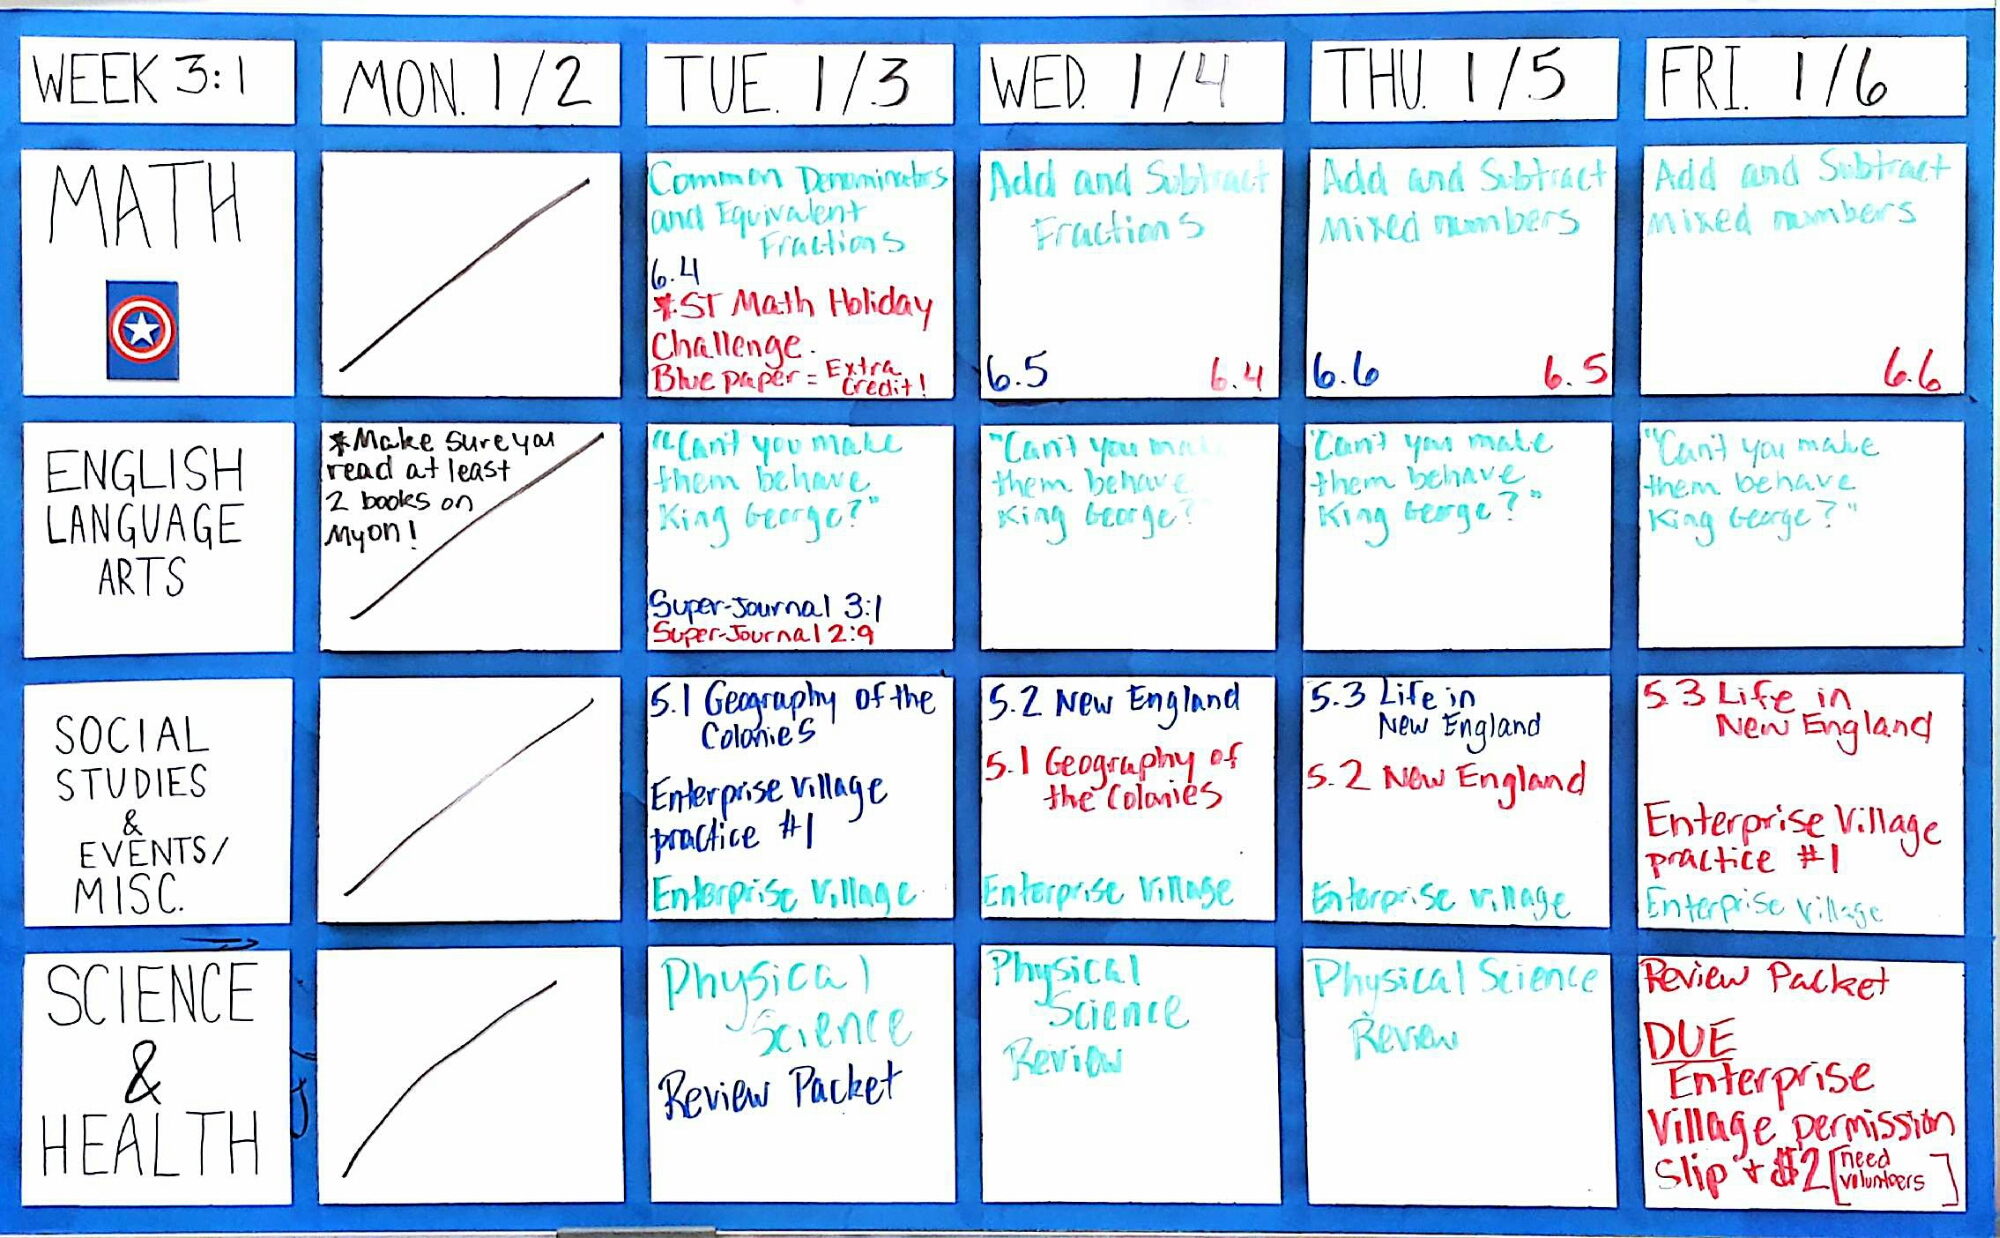 WEEK 3:1
MON. 1/2
TUE. 1/3
WED. 1/4
THU. 1/5
FRI. 1/6
MATH
Common Denominators
and Equivalent
Fractions
6.4
*ST Math Holiday
Challenge.
Blue paper = Extra
Credit!
Add and Subtract
Fractions
6.5 6.4
Add and Subtract
Mixed numbers
6.6 6.5
Add and Subtract
Mixed numbers
6.6
ENGLISH
LANGUAGE
ARTS
*Make sure you
read at least
2 books on
Myon!
"Can't you make
them behave
King George?"
Super-Journal 3:1
Super-Journal 2:9
"Can't you ma
them behave
King George?
"Can't you make
them behave
King George?"
"Can't you make
them behave
King George?"
SOCIAL
STUDIES
&
EVENTS/
MISC.
5.1 Geography of the
Colonies
Enterprise Village
practice #1
Enterprise Village
5.2 New England
5.1 Geography of
the Colonies
Enterprise Village
5.3 Life in
New England
5.2 New England
Enterprise Village
5.3 Life in
New England
Enterprise Village
practice #1
Enterprise Village
SCIENCE
&
HEALTH
Physical
Science
Review Packet
Physical
Science
Review
Physical Science
Review
Review Packet
DUE
Enterprise
Village permission
Slip + $2 [need
volunteers]